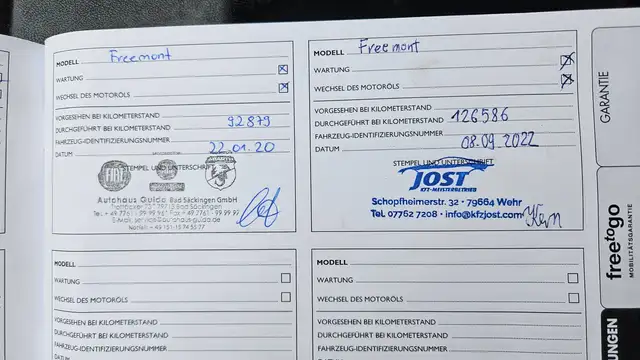 MODELL Freemont
WARTUNG
WECHSEL DES MOTORÖLS
VORGESEHEN BEI KILOMETERSTAND
DURCHGEFÜHRT BEI KILOMETERSTAND 92879
FAHRZEUG-IDENTIFIZIERUNGSNUMMER
DATUM 22.01.20
STEMPEL UND UNTERSCHRIFT
FIAT
ABARTH
Autohaus Guido Bad Säckingen GmbH
79713 Bad Säckingen
MODELL Freemont
WARTUNG
WECHSEL DES MOTORÖLS
VORGESEHEN BEI KILOMETERSTAND
DURCHGEFÜHRT BEI KILOMETERSTAND 126586
FAHRZEUG-IDENTIFIZIERUNGSNUMMER
DATUM 08.09.2022
STEMPEL UND UNTERSCHRIFT
JOST
KFZ-MEISTERBETRIEB
Schopfheimerstr. 32 · 79664 Wehr
Tel. 07762 7208 · info@kfzjost.com
MODELL
WARTUNG
WECHSEL DES MOTORÖLS
VORGESEHEN BEI KILOMETERSTAND
DURCHGEFÜHRT BEI KILOMETERSTAND
FAHRZEUG-IDENTIFIZIERUNGSNUMMER
DATUM
MODELL
WARTUNG
WECHSEL DES MOTORÖLS
VORGESEHEN BEI KILOMETERSTAND
DURCHGEFÜHRT BEI KILOMETERSTAND
FAHRZEUG-IDENTIFIZIERUNGSNUMMER
GARANTIE
freetogo
MOBILITÄTSGARANTIE